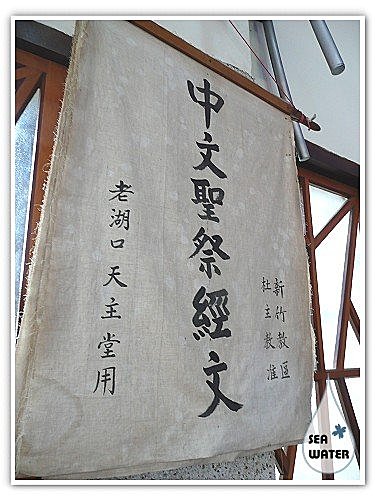 新竹教區
杜主教准
中文聖祭經文
老湖口天主堂用
SEA
WATER